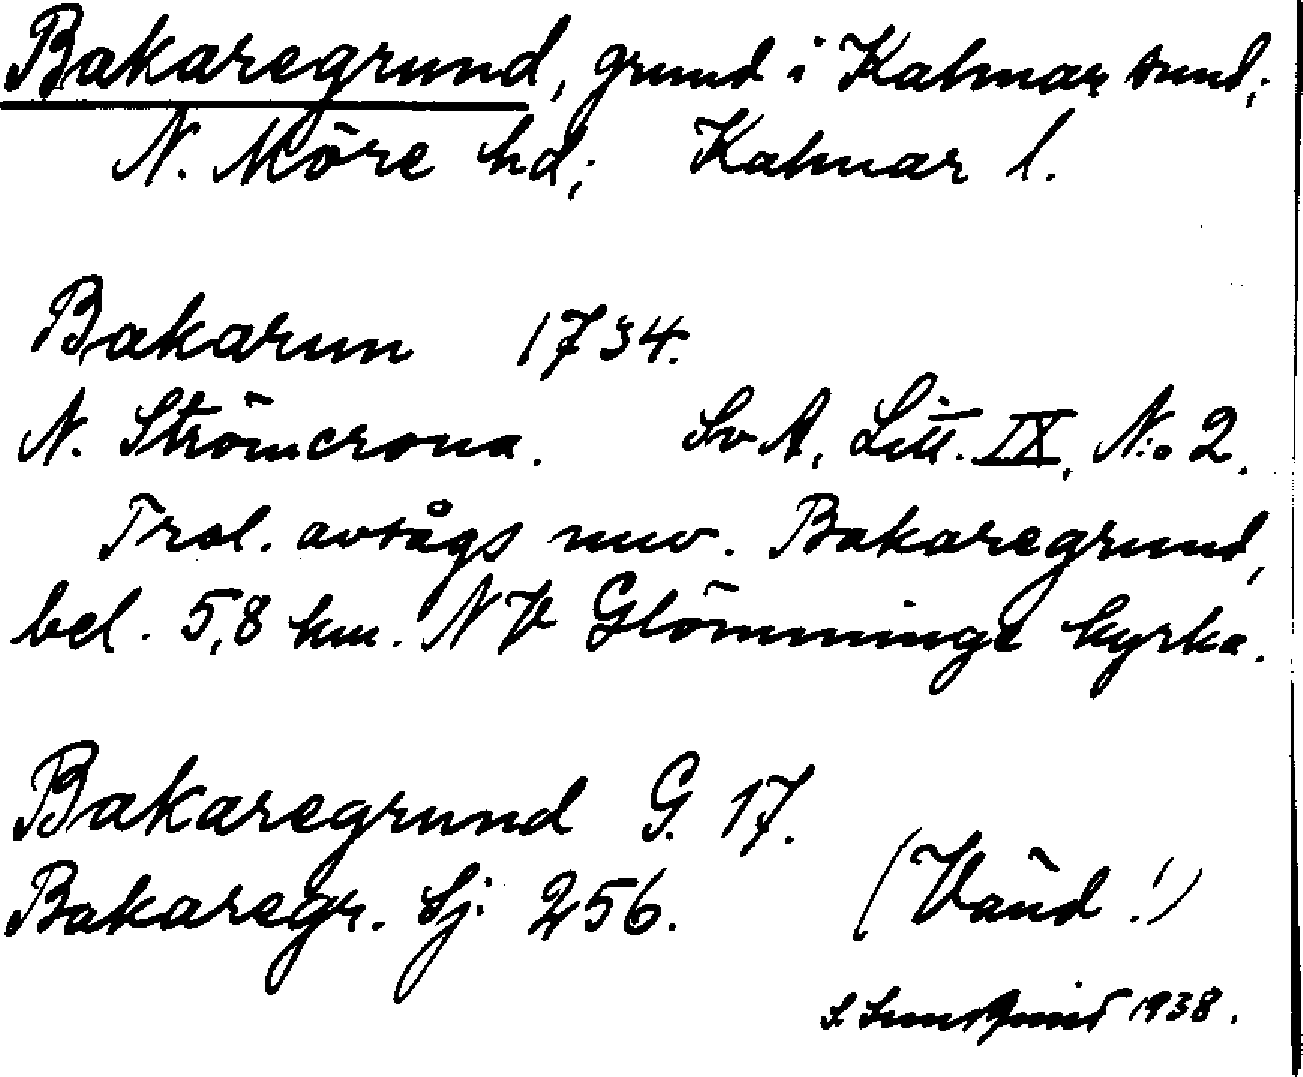 Bakaregrund, grund i Kalmar sund;
N. Möre hd; Kalmar l.
Bakarun 1734.
N. Strömcrona. Sv A, Litt. IX, N:o 2.
Trol. avtågs nuv. Bakaregrund,
bel. 5,8 km. NV Glömminge kyrka.
Bakaregrund G. 17.
Bakaregr. Sj: 256. (Vänd!)
S. 1938.